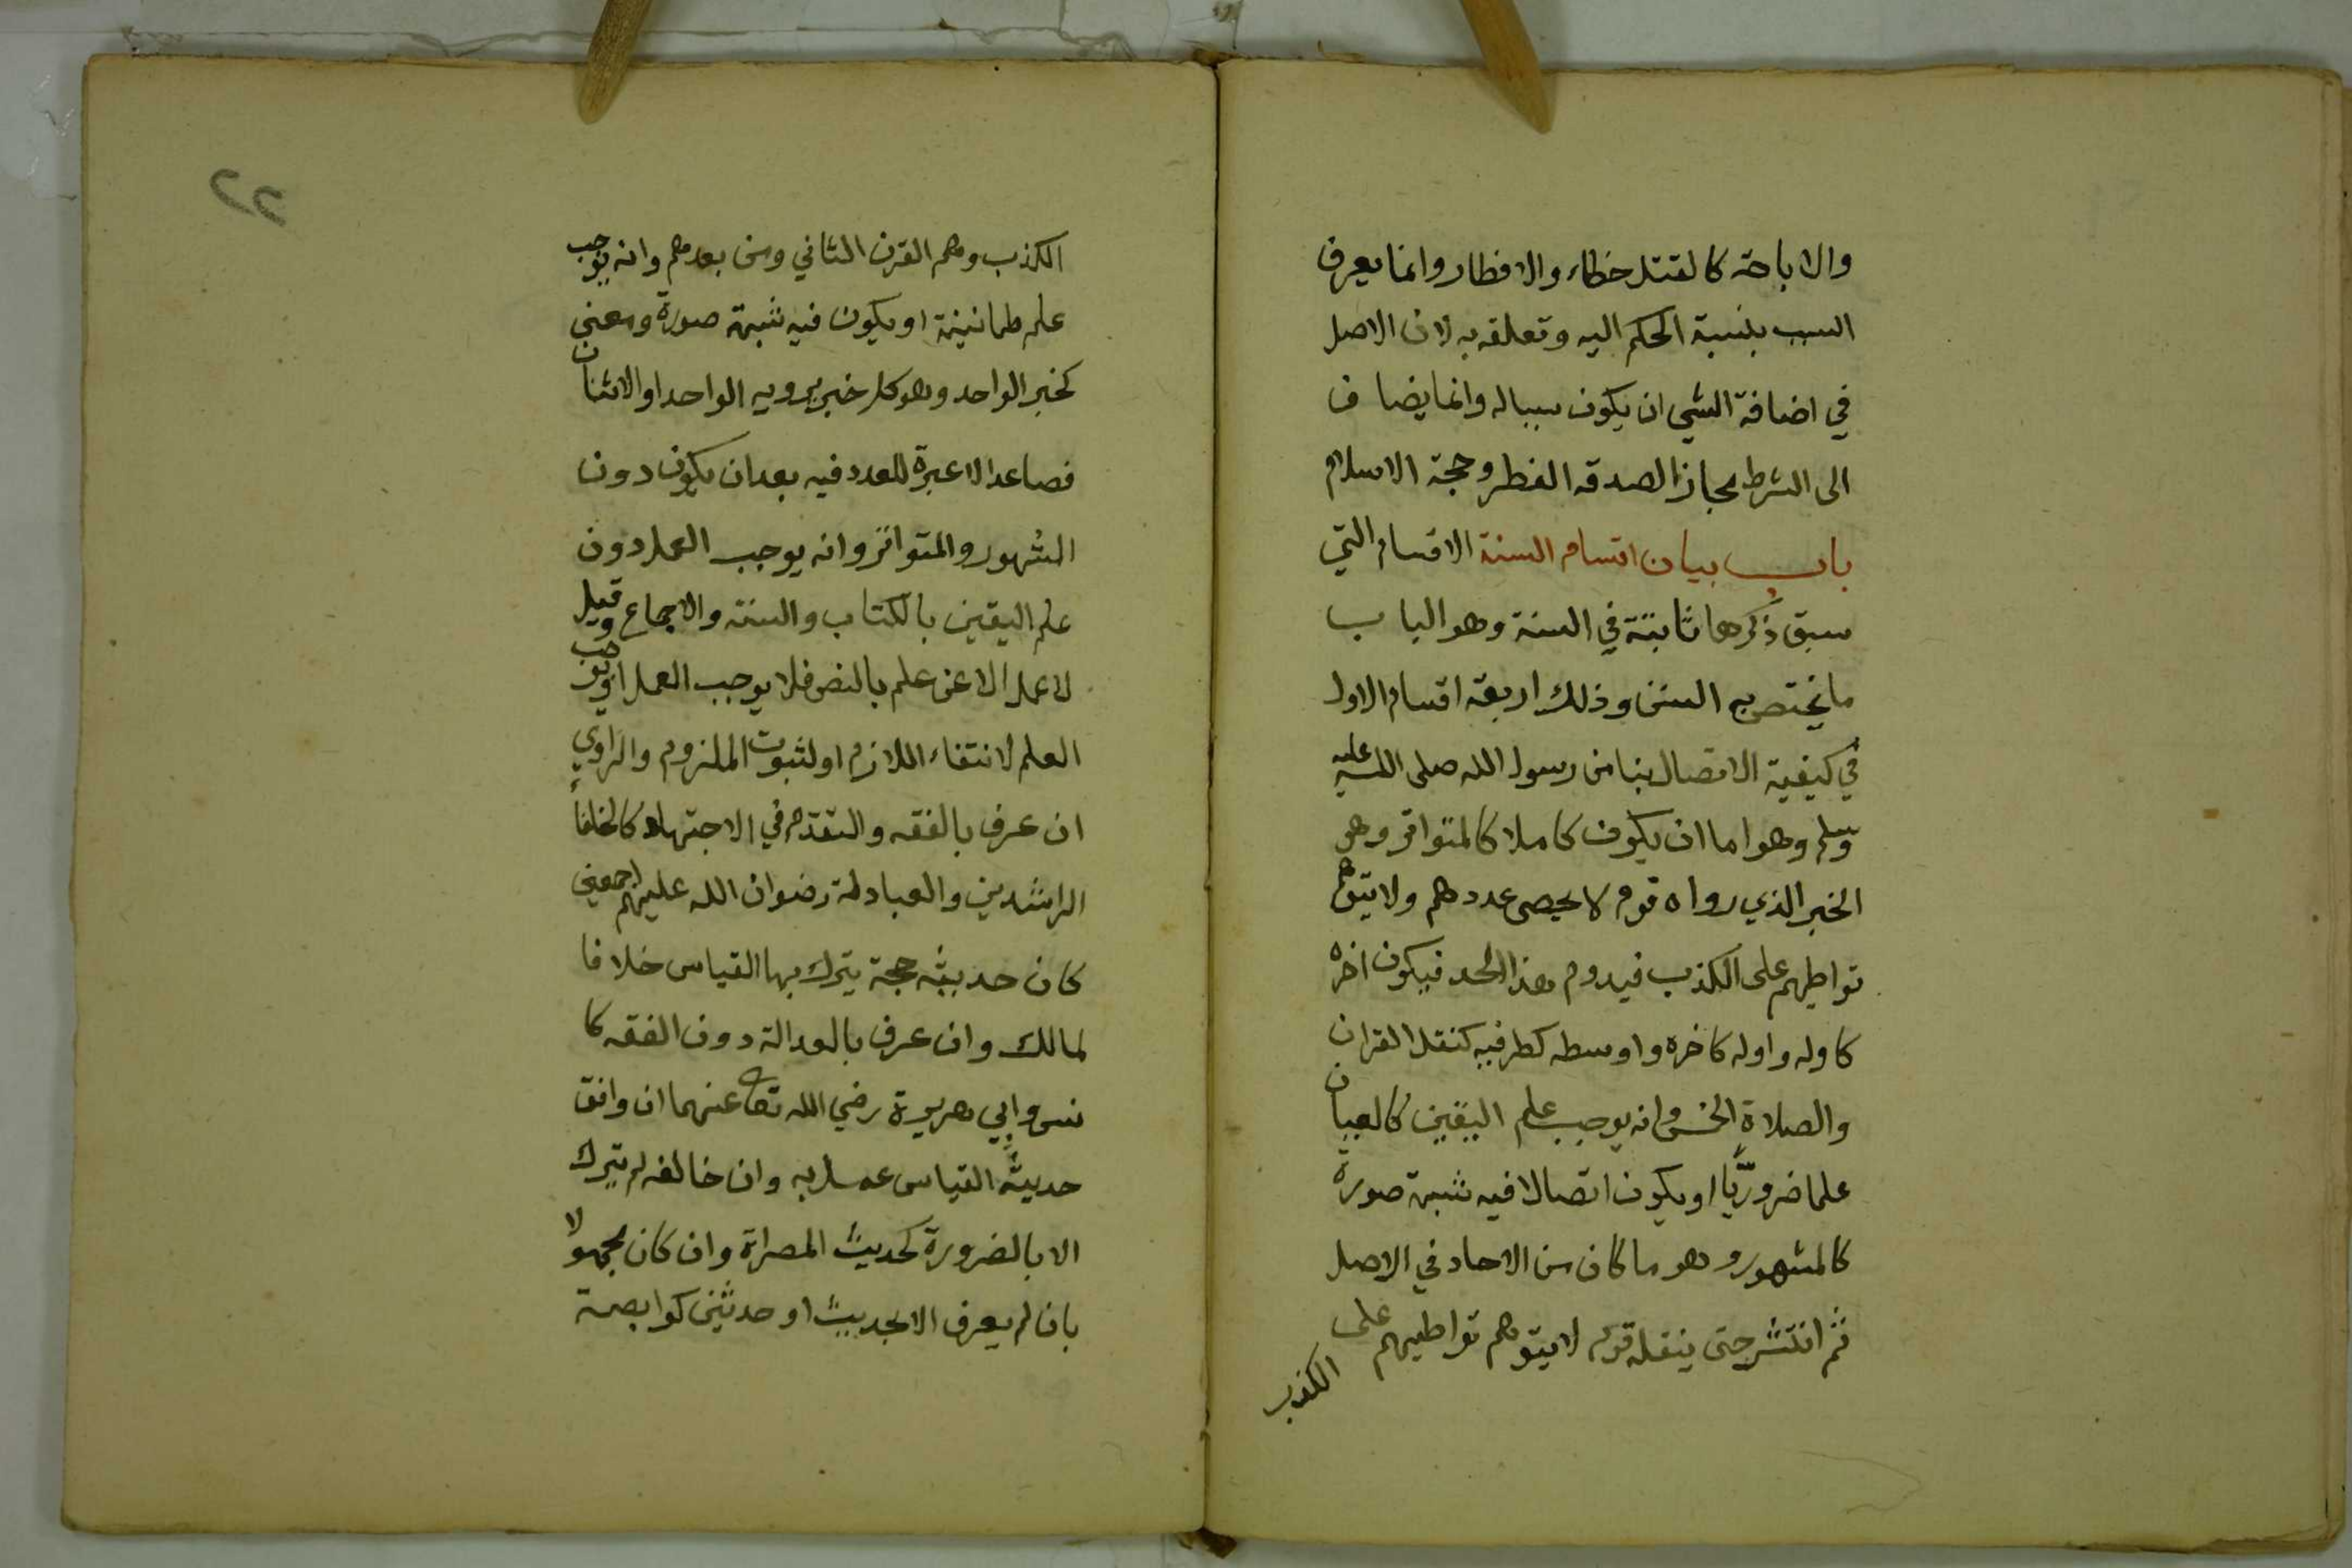 والاباحة كالقتل خطاء والافطار وانما يعرف
السبب بنسبة الحكم اليه وتعلقه به لان الاصل
في اضافة الشي ان يكون سببا له وانما يضاف
الى الشرط مجازا لصدقه الفطر وحجة الاسلام
باب بيان اقسام السنة الاقسام التي
سبق ذكرها ثابتة في السنة وهو الباب
ما يختص به السنن وذلك اربعة اقسام الاول
في كيفية الاتصال بنا من رسول الله صلى الله عليه
وسلم وهو اما ان يكون كاملا كالمتواتر وهو
الخبر الذي رواه قوم لا يحصى عددهم ولا يتوهم
تواطيهم على الكذب فيدوم هذا الحد فيكون اخره
كاوله واوله كاخره واوسطه كطرفيه كنقل القران
والصلاة الخمس وانه يوجب علم اليقين كالعيان
علما ضروريّا او يكون اتصالا فيه شبهة صورة
كالمشهور وهو ما كان من الاحاد في الاصل
ثم انتشر حتى ينقله قوم لا يتوهم تواطيهم على
الكذب
٢٢
الكذب وهم القرن الثاني ومن بعدهم وانه يوجب
علم طمانينة او يكون فيه شبهة صورة ومعنى
كخبر الواحد وهو كل خبر يرويه الواحد او الاثنان
فصاعدا لا عبرة للعدد فيه بعد ان يكون دون
المشهور والمتواتر وانه يوجب العمل دون
علم اليقين بالكتاب والسنة والاجماع وقيل
لا عمل الا عن علم بالنص فلا يوجب العمل او يوجب
العلم لانتفاء اللازم او لثبوت الملزوم والراوي
ان عرف بالفقه والتقدم في الاجتهاد كالخلفاء
الراشدين والعبادلة رضوان الله عليهم اجمعين
كان حديثه حجة يترك بها القياس خلافا
لمالك وان عرف بالعدالة دون الفقه كا
نس وابي هريرة رضي الله تعا عنهما ان وافق
حديثه القياس عمل به وان خالفه لم يترك
الا بالضرورة كحديث المصراة وان كان مجهولا
بان لم يعرف الا بحديث او حديثين كوابصة